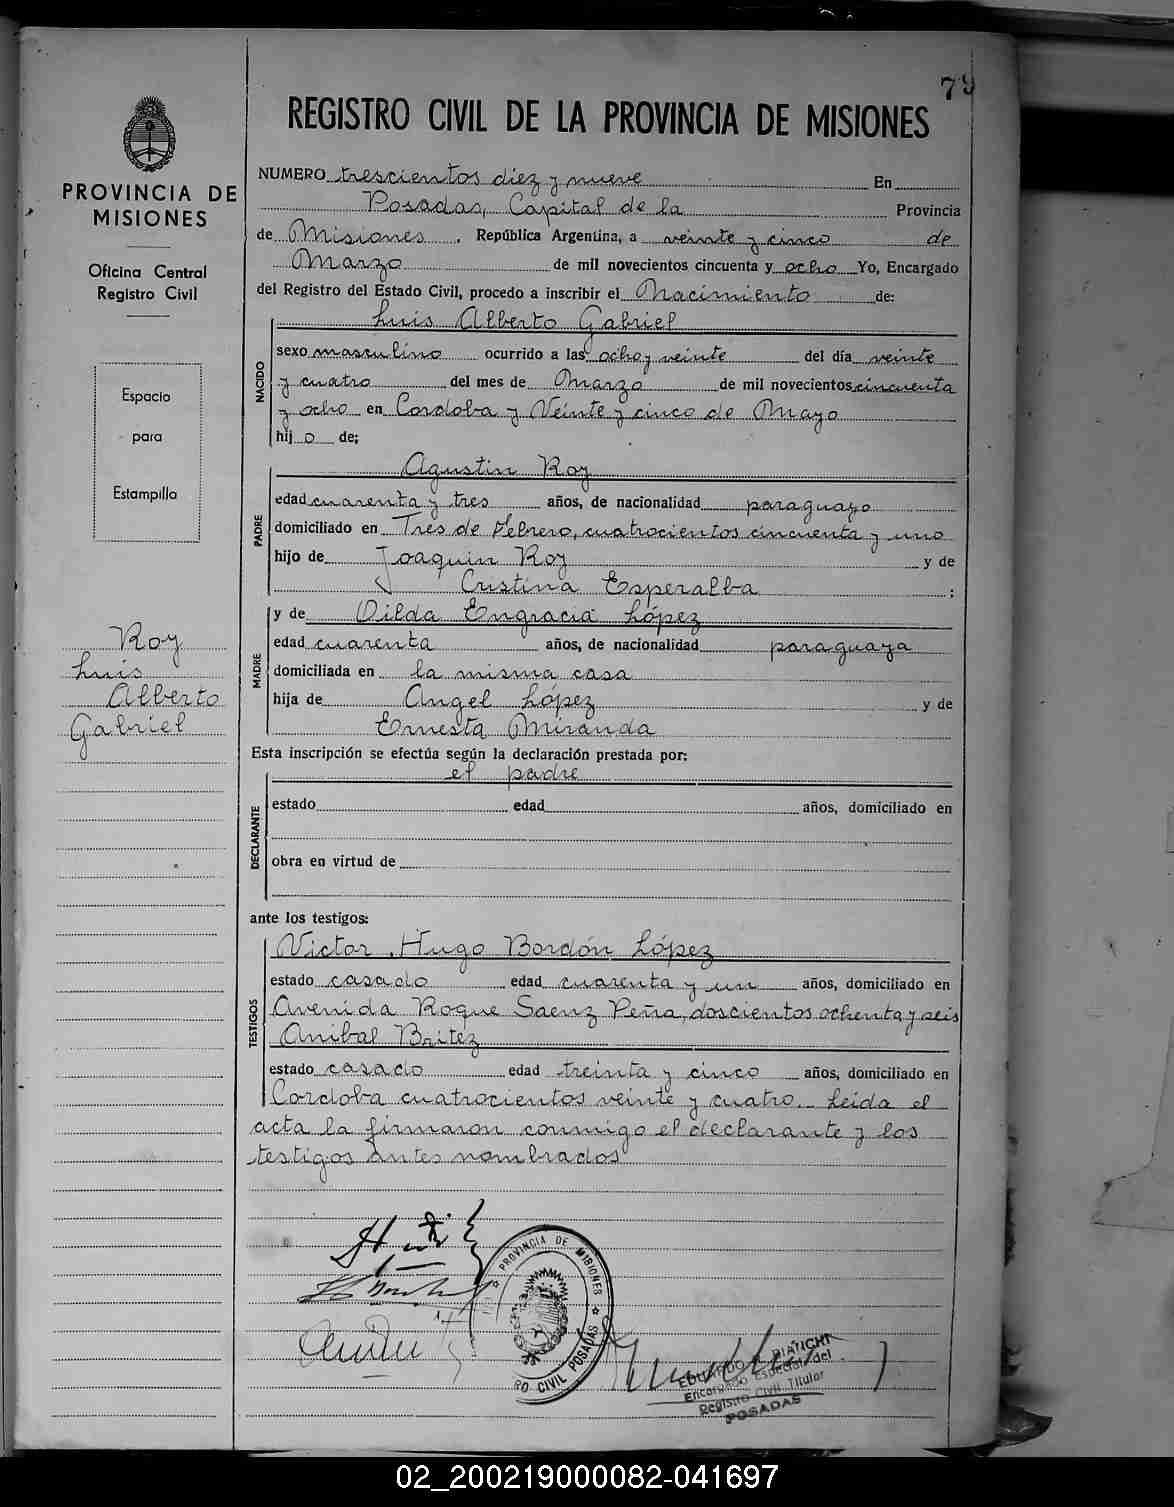 79
REGISTRO CIVIL DE LA PROVINCIA DE MISIONES
PROVINCIA DE
MISIONES
Oficina Central
Registro Civil
Espacio
para
Estampilla
Roy
Luis
Alberto
Gabriel
NUMERO trescientos diez y nueve En
Posadas, Capital de la Provincia
de Misiones . República Argentina, a veinte y cinco de
Marzo de mil novecientos cincuenta y ocho Yo, Encargado
del Registro del Estado Civil, procedo a inscribir el Nacimiento de:
NACIDO
Luis Alberto Gabriel
sexo masculino ocurrido a las ocho y veinte del día veinte
y cuatro del mes de Marzo de mil novecientos cincuenta
y ocho en Cordoba y Veinte y cinco de Mayo
hij o de;
PADRE
Agustin Roy
edad cuarenta y tres años, de nacionalidad paraguayo
domiciliado en Tres de Febrero, cuatrocientos cincuenta y uno
hijo de Joaquin Roy y de
Cristina Esperalba ;
MADRE
y de Oilda Engracia López
edad cuarenta años, de nacionalidad paraguaya
domiciliada en la misma casa
hija de Angel López y de
Ernesta Miranda
Esta inscripción se efectúa según la declaración prestada por:
el padre
DECLARANTE
estado edad años, domiciliado en
obra en virtud de
ante los testigos:
TESTIGOS
Victor Hugo Bordón López
estado casado edad cuarenta y un años, domiciliado en
Avenida Roque Saenz Peña, doscientos ochenta y seis
Anibal Britez
estado casado edad treinta y cinco años, domiciliado en
Cordoba cuatrocientos veinte y cuatro. Leida el
acta la firmaron conmigo el declarante y los
testigos antes nombrados
PROVINCIA DE MISIONES
RO CIVIL POSADAS
EDUARDO BIANCHI
Encargado Especial del
Registro Civil Titular
POSADAS
02_200219000082-041697